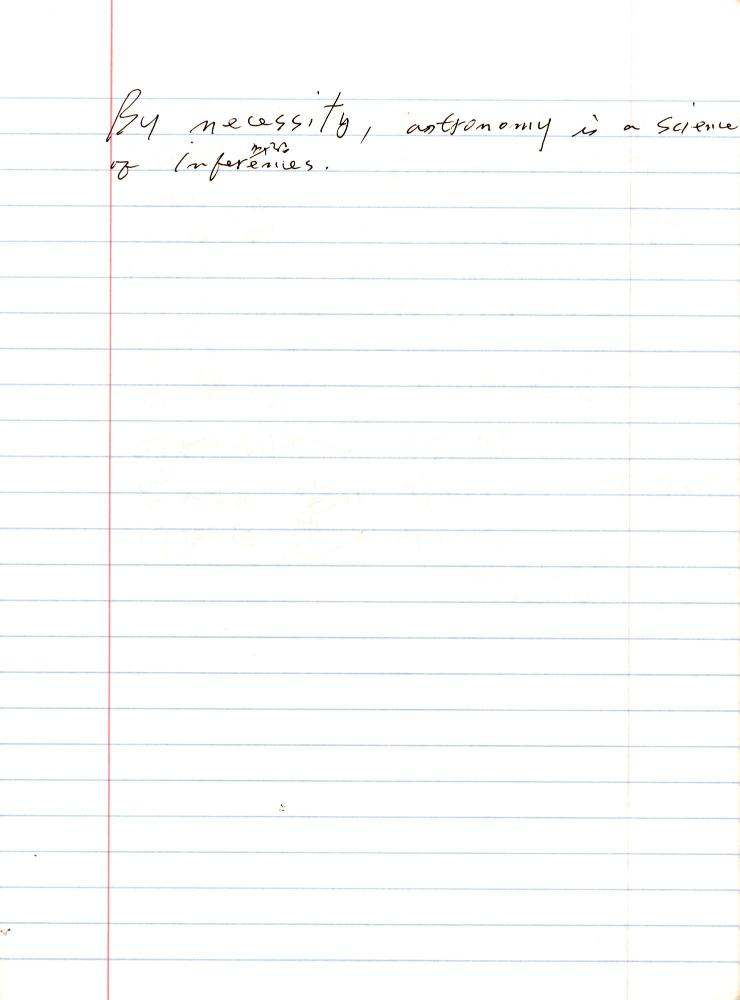 By necessity, astronomy is a science
of inferences.